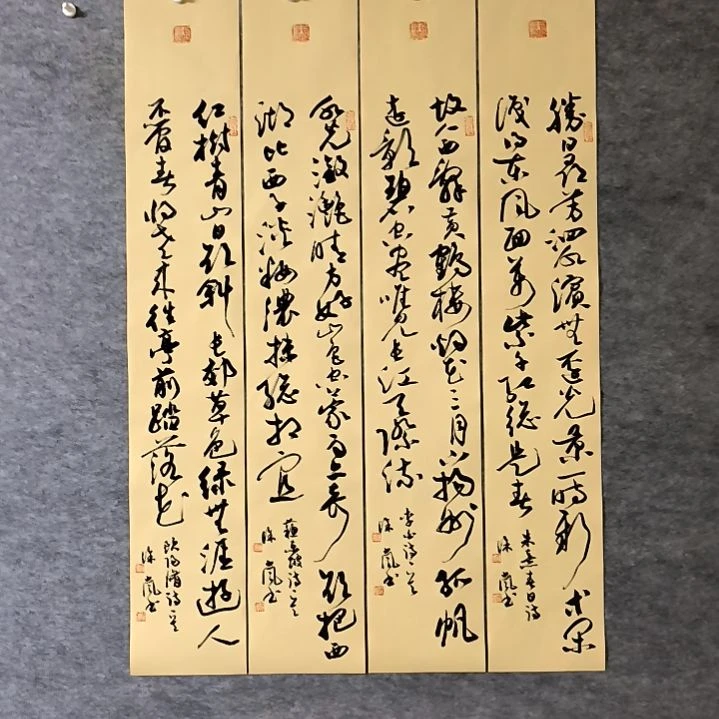 勝日尋芳泗水濱無邊光景一時新等閒
識得東風面萬紫千紅總是春
朱熹春日詩
徐嵐書
故人西辭黃鶴樓煙花三月下揚州孤帆
遠影碧空盡唯見長江天際流
李白詩一首
徐嵐書
水光瀲灩晴方好山色空蒙雨亦奇欲把西
湖比西子淡妝濃抹總相宜
蘇東坡詩一首
徐嵐書
紅樹青山日欲斜長郊草色綠無涯遊人
不管春將老來往亭前踏落花
歐陽修詩一首
徐嵐書